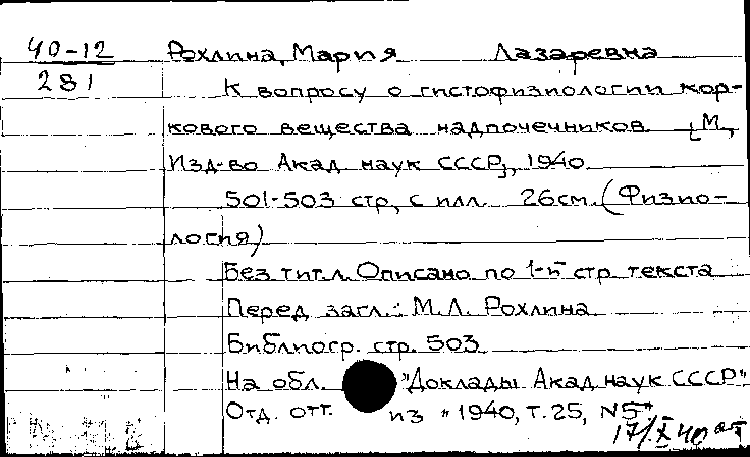 40-12 Рохлина, Мария Лазаревна
281 К вопросу о гистофизиологии кор-
кового вещества надпочечников. [М.,
Изд-во Акад. наук СССР], 1940.
501-503 стр., с илл. 26см. (Физио-
логия)
Без тит. л. Описано по 1-й стр. текста
Перед загл.: М.Л. Рохлина
Библиогр. стр. 503
На обл. "Доклады Акад. наук СССР"
Отд. отт. из " 1940, т. 25, N5"
17/X 40